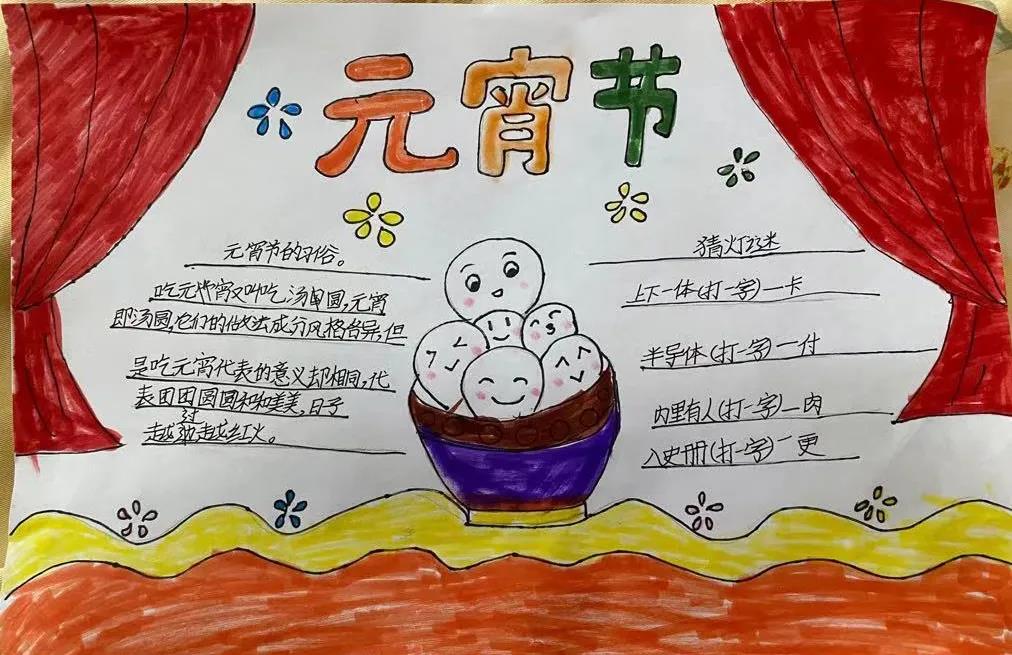 元宵节
元宵节的习俗。
吃元宵又叫吃汤圆,元宵
即汤圆,它们的做法成分风格各异,但
是吃元宵代表的意义却相同,代
表团团圆圆和和美美,日子
越过越红火。
猜灯谜
上下一体(打一字)一卡
半导体(打一字)一付
内里有人(打一字)一肉
入史册(打一字)一更